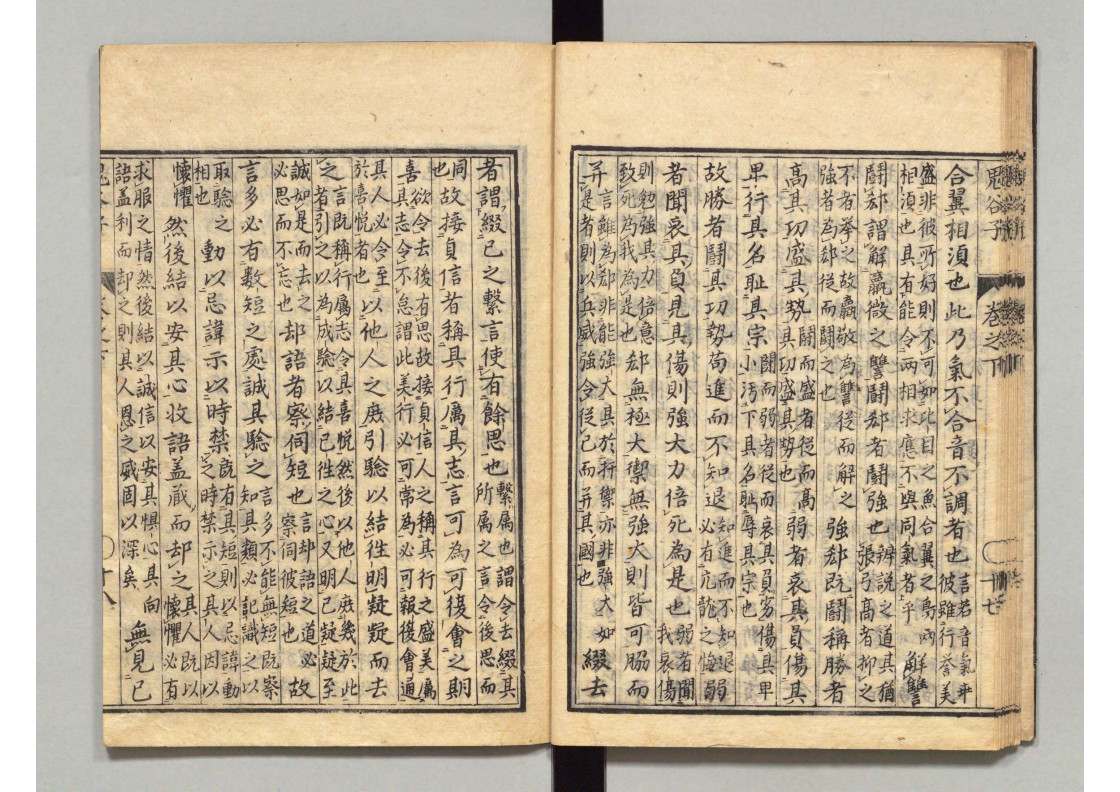 鬼谷子 卷之下 十七
合翼相須也此乃氣不合音不調者也言若音氣乖彼雖行譽美
盛非彼所好則不可如比目之魚合翼之鳥兩相須也其有能令兩相求應不與同氣者乎解讐
鬭郄謂解羸微之讐鬭郄者鬭強也辨說之道其猶張弓高者抑之
不者舉之故羸敬為讐從而解之強者為郄從而鬭之也強郄既鬭稱勝者
高其功盛其勢鬭而盛者從而高其功盛其勢也弱者哀其負傷其
卑行其名恥其宗鬭而弱者從而哀其負劣傷其卑小汚下其名恥辱其宗也
故勝者鬭其功勢苟進而不知退知進而不知退必有亢龍之悔弱
者聞哀其負見其傷則強大力倍死為是也弱者聞我哀傷
則勉強其力倍意致死為我為是也郄無極大禦無強大則皆可脇而
幷言雖為郄非能強大其於扞禦亦非強大如是者則以兵威強令從已而幷其國也綴去
者謂綴已之繫言使有餘思也繫屬也謂令去綴其所属之言令後思而
同也故接貞信者稱其行厲其志言可為可復會之期
喜欲令去後有思故接貞信人之稱其行之盛美厲其志令不怠謂此美行必可常為必可報後會通
其人必令至於喜悅者也以他人之庻引驗以結徃明疑疑而去
之言既稱行厲志令其喜悅然後以他人庻幾於此者引之以為成驗以結已徃之心又明已疑疑至
誠如是而去之必思而不忘也却語者察伺短也言却語之道必察伺彼短也故
言多必有數短之處誠其驗之言多不能無短既察知其類必記識之以
取驗之相也動以忌諱示以時禁既有其短則以忌諱動之時禁示之其人因以
懷懼然後結以安其心收語盖藏而却之其人既以懷懼必有
求服之情然後結以誠信以安其懼心其向語盖利而却之則其人恩之咸固以深矣無見已